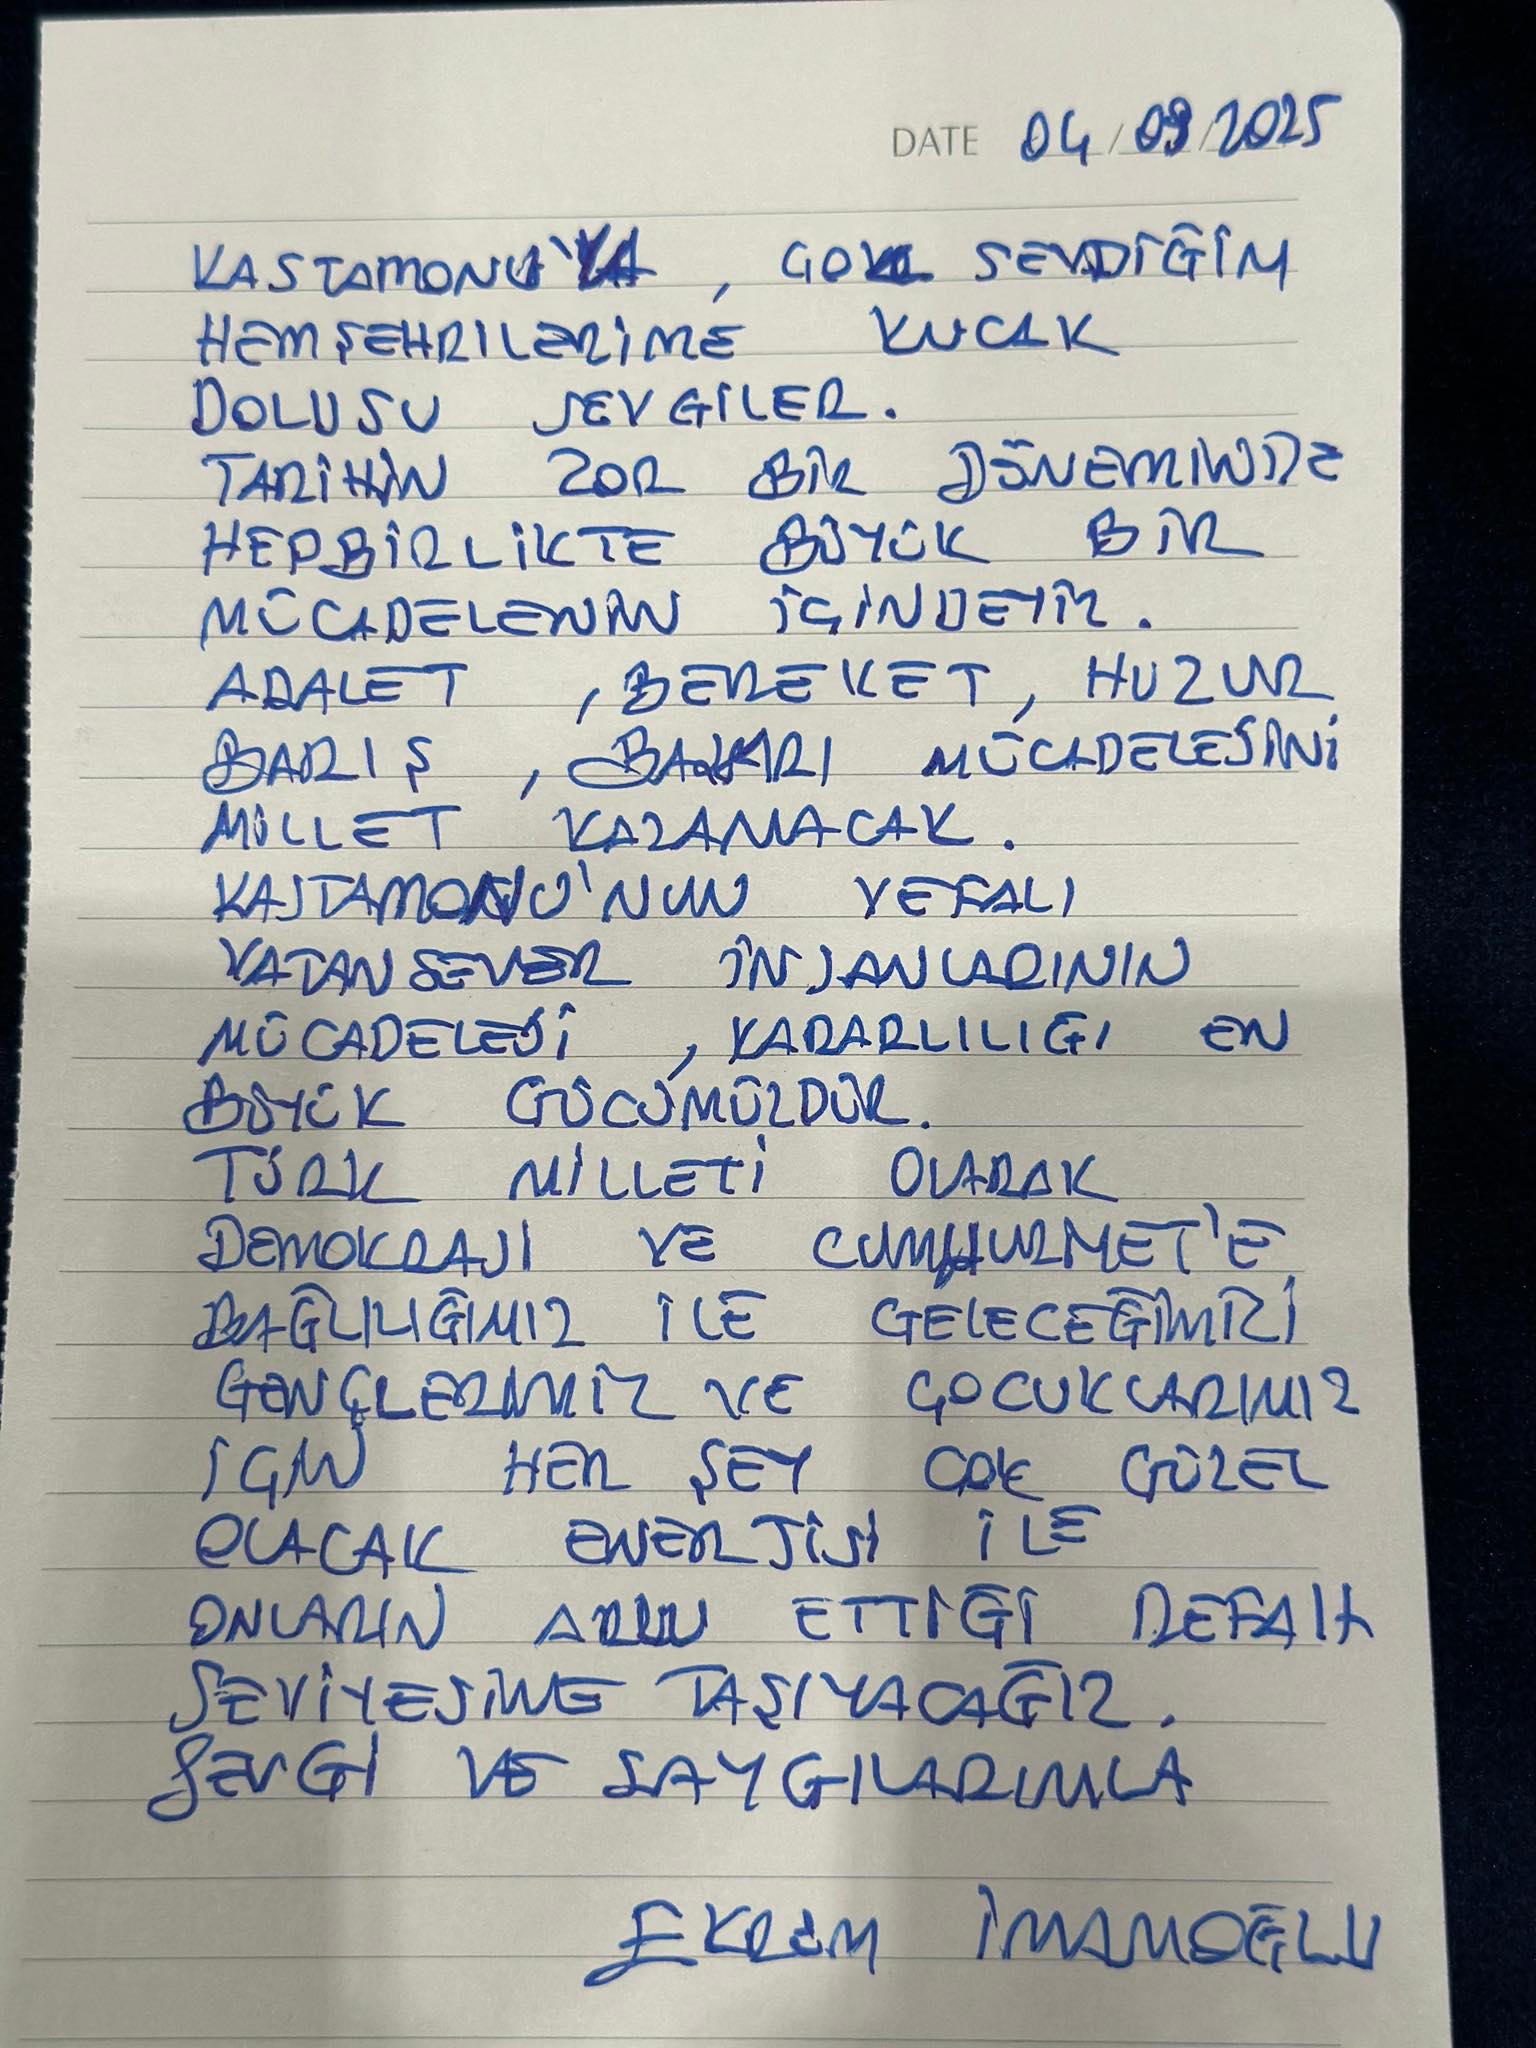 DATE 04/09/2025
KASTAMONU'YA, ÇOK SEVDİĞİM
HEMŞEHRİLERİME KUCAK
DOLUSU SEVGİLER.
TARİHİN ZOR BİR DÖNEMİNDE
HEPBİRLİKTE BÜYÜK BİR
MÜCADELENİN İÇİNDEYİZ.
ADALET, BEREKET, HUZUR
BARIŞ, BAŞARI MÜCADELESİNİ
MİLLET KAZANACAK.
KASTAMONU'NUN VEFALI
VATANSEVER İNSANLARININ
MÜCADELESİ, KARARLILIĞI EN
BÜYÜK GÜCÜMÜZDÜR.
TÜRK MİLLETİ OLARAK
DEMOKRASİ VE CUMHURİYET'E
BAĞLILIĞIMIZ İLE GELECEĞİMİZİ
GENÇLERİMİZ VE ÇOCUKLARIMIZ
İÇİN HER ŞEY ÇOK GÜZEL
OLACAK ENERJİSİ İLE
ONLARIN ARZU ETTİĞİ REFAH
SEVİYESİNE TAŞIYACAĞIZ.
SEVGİ VE SAYGILARIMLA
EKREM İMAMOĞLU